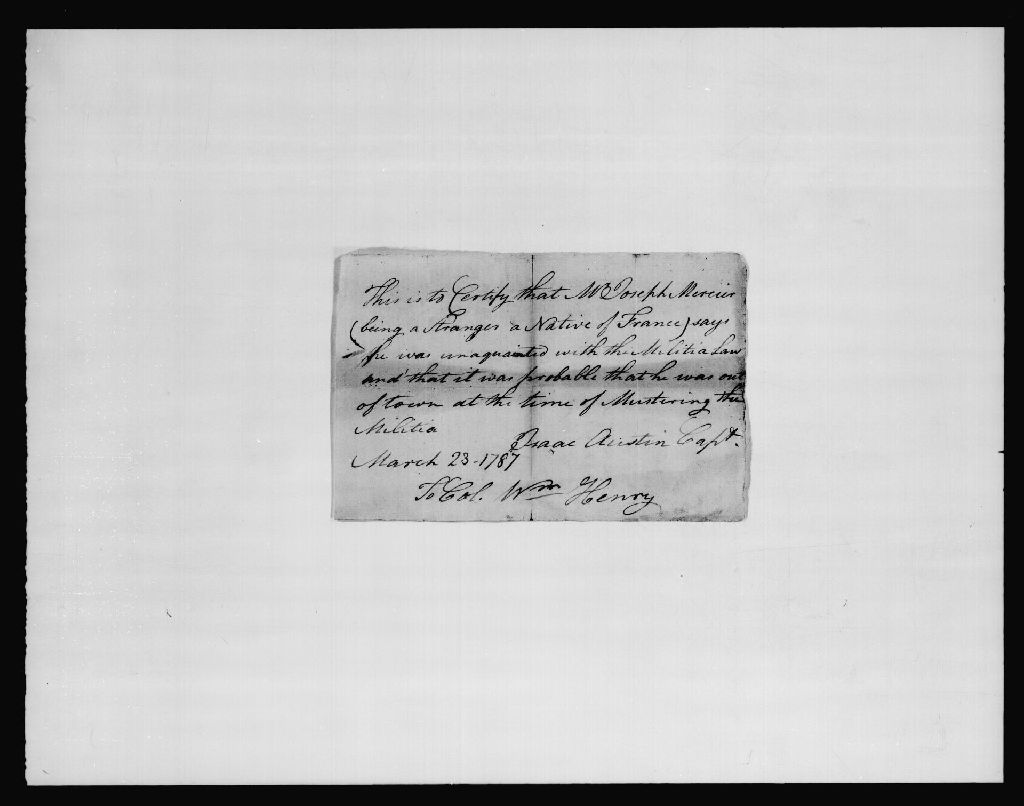 This is to Certify that Mr Joseph Mercier
(being a Stranger a Native of France) says
he was unaquainted with the Militia Law
and that it was probable that he was out
of town at the time of Mustering the
Militia
Isaac Austin Capt.
March 23-1787
To Col. Wm Henry